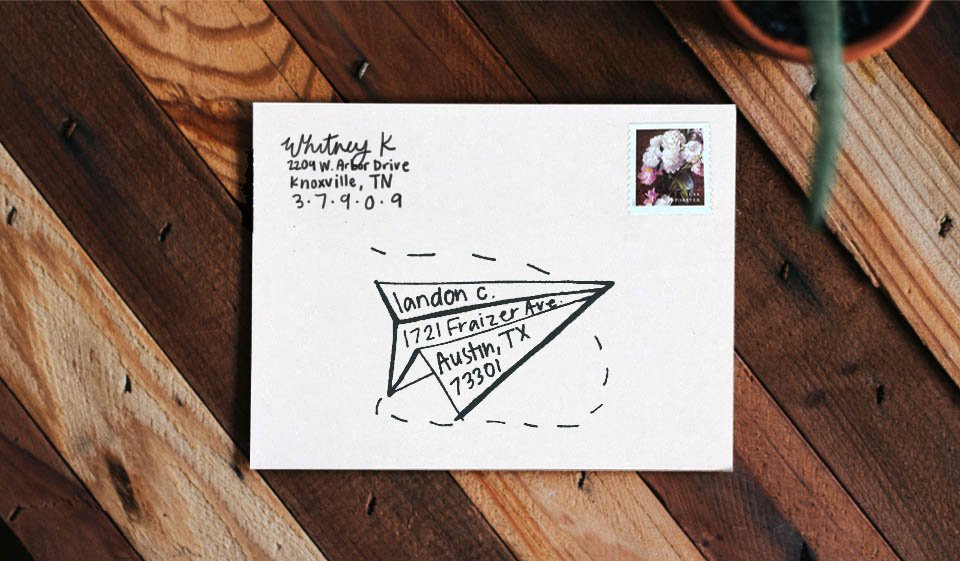 Whitney K
2209 W. Arbor Drive
Knoxville, TN
3·7·9·0·9
landon c.
1721 Fraizer Ave.
Austin, TX
73301
USA
FOREVER